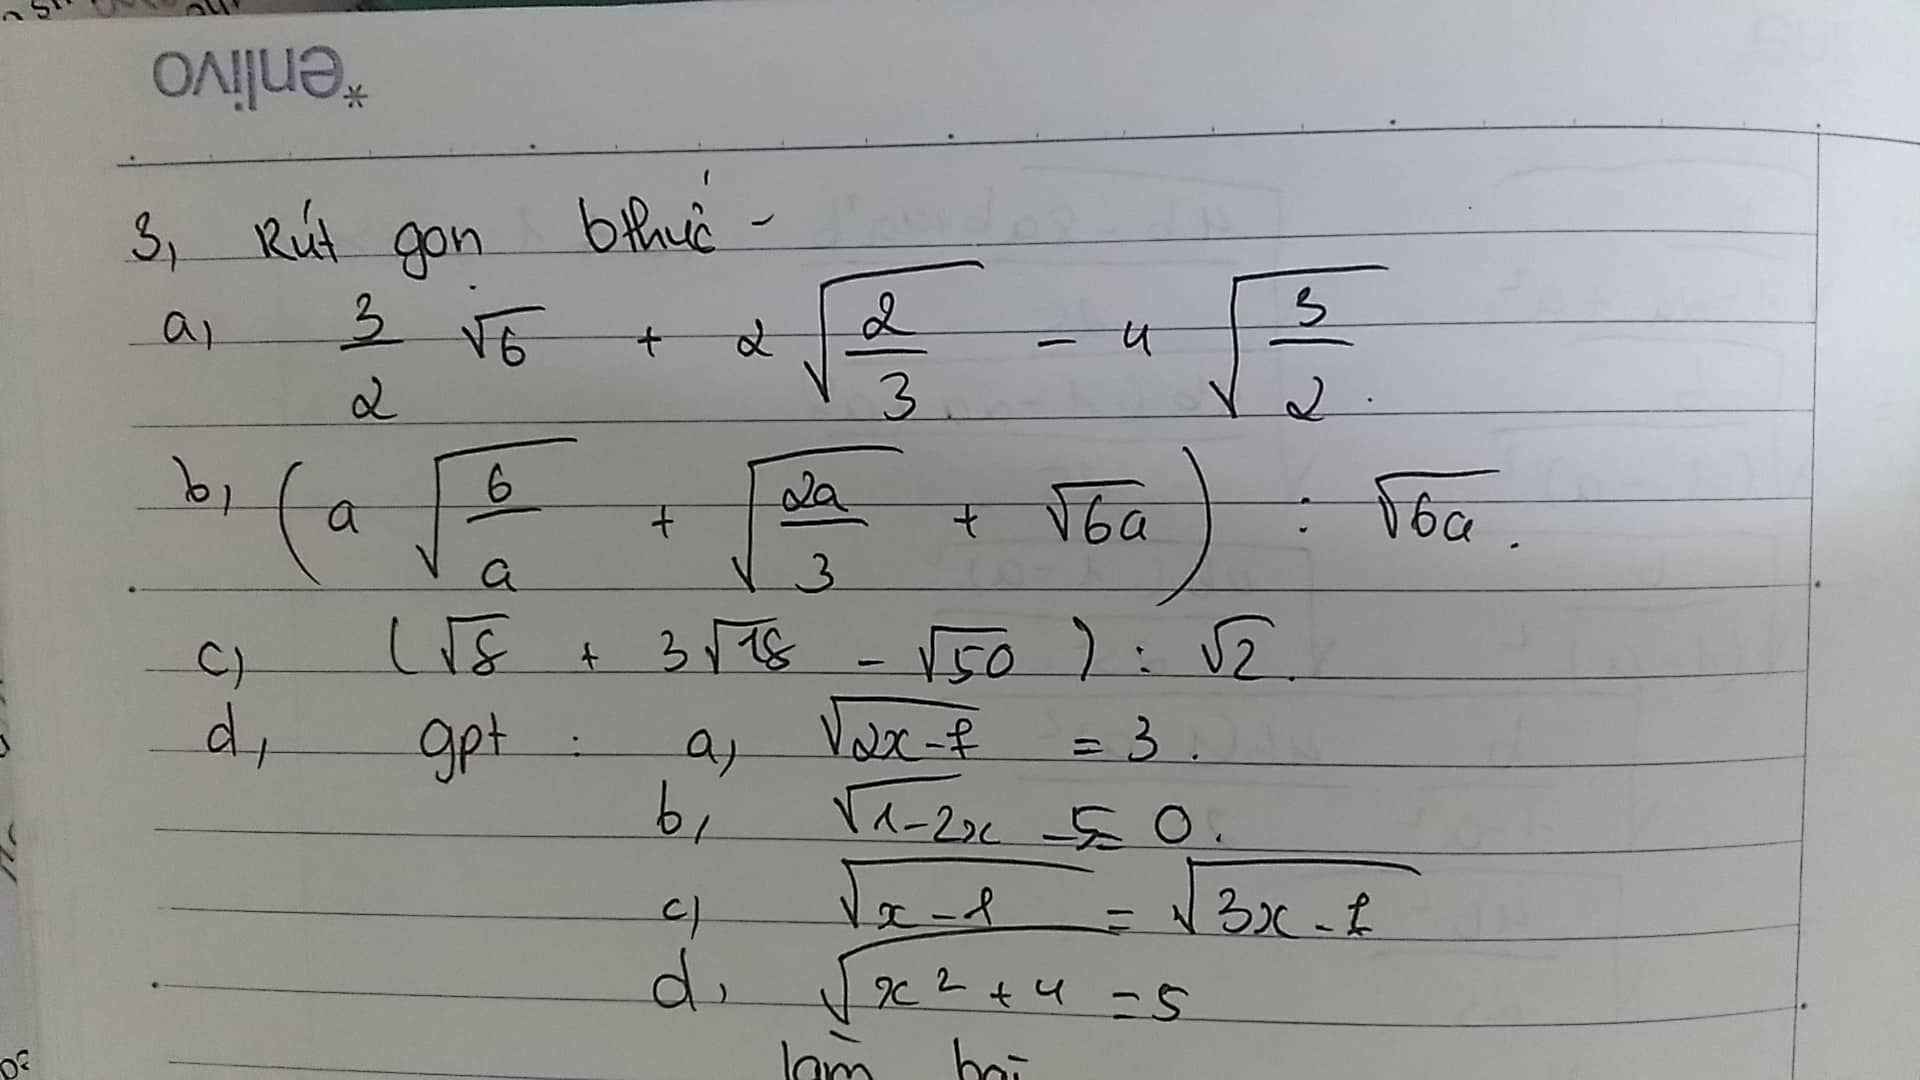 *enlivo
3, Rút gọn bthức -
a, 3/2 √6 + 2 √(2/3) - 4 √(3/2).
b, (a √(6/a) + √(2a/3) + √6a) : √6a.
c) (√8 + 3√18 - √50) : √2.
d, gpt : a, √2x-1 = 3.
b, √1-2x -5 = 0.
c) √x-1 = √3x-1
d, √x²+4 = 5
làm bài